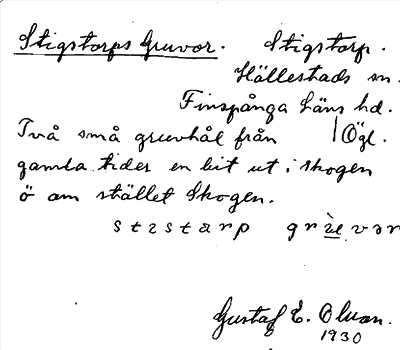 Stigstorps Gruvor. Stigstorp.
Hällestads sn.
Finspånga läns hd.
Två små gruvhål från Ögl.
gamla tider en bit ut i skogen
ö om stället Skogen.
Gustaf E. Olsson.
1930